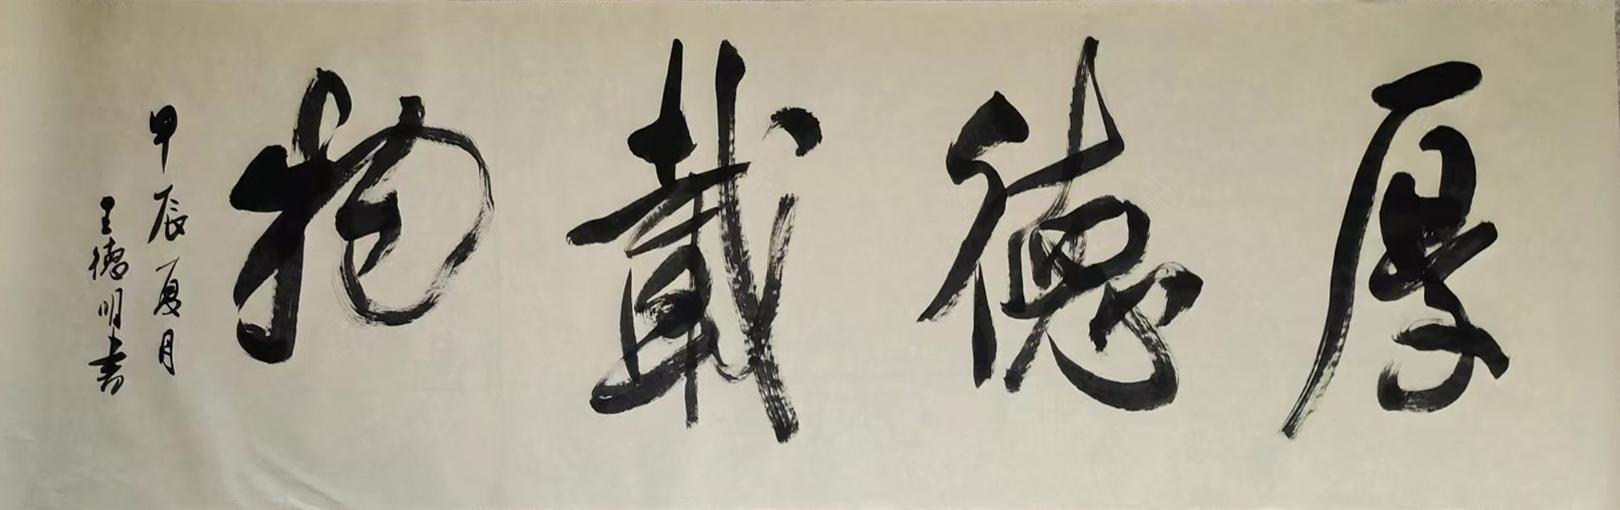 厚德載物
甲辰夏月
王德明書